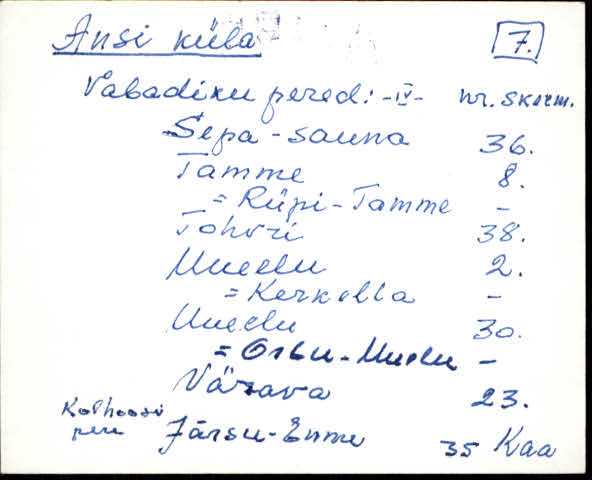 Ansi küla 7.
Vabadiku pered: -IV- nr. skeem.
Sepa-sauna 36.
Tamme 8.
= Rüpi-Tamme -
Tohvri 38.
Uueelu 2.
= Kerkolla -
Uueelu 30.
= Orbu-Uuelu -
Värava 23.
Kolhoosi
pere Järsu-Enme 35 Kaa